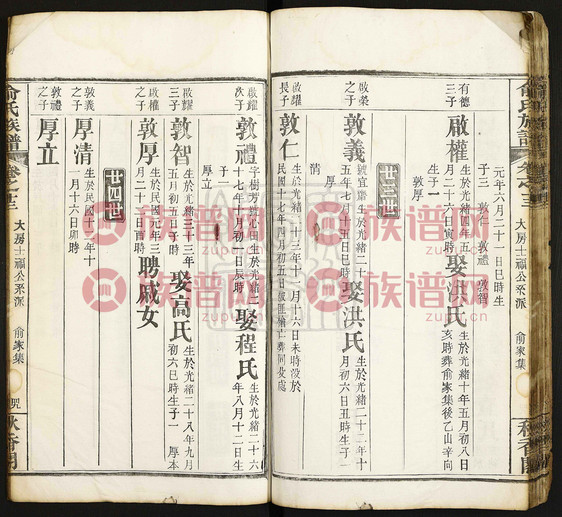 俞氏族譜
卷之十三
大房士福公系派
俞家集
秋香閣
元年六月二十一日巳時生
子三 敦仁 敦禮 敦智
有德
三子
啟權
生於光緒四年五
月二十六日寅時
娶洪氏
生於光緒十年五月初八日
亥時葬俞家集後乙山辛向
生子一 敦厚
廿三世
啟榮
之子
敦義
號宜齋生於光緒二十
五年七月十五日巳時
娶洪氏
生於光緒二十二年十
月初六日丑時生子一
厚清
啟耀
長子
敦仁
生於光緒三十三年十二月十六日未時沒於
民國十七年四月初五日
啟耀
次子
敦禮
字樹芳號心田生於光緒二
十七年十月初一辰時
娶程氏
生於光緒二十六
年八月十二日生
子一
厚立
啟耀
三子
敦智
生於光緒三十三年
五月初五日子時
娶高氏
生於光緒二十八年九月
初六巳時生子一 厚本
啟權
之子
敦厚
生於民國元年三
月二十二日酉時
聘戚女
廿四世
敦義
之子
厚清
生於民國十一年十
一月十六日卯時
敦禮
之子
厚立
俞氏族譜
卷之十三
大房士福公系派
俞家集
秋香閣
族譜網
www.zupu.cn